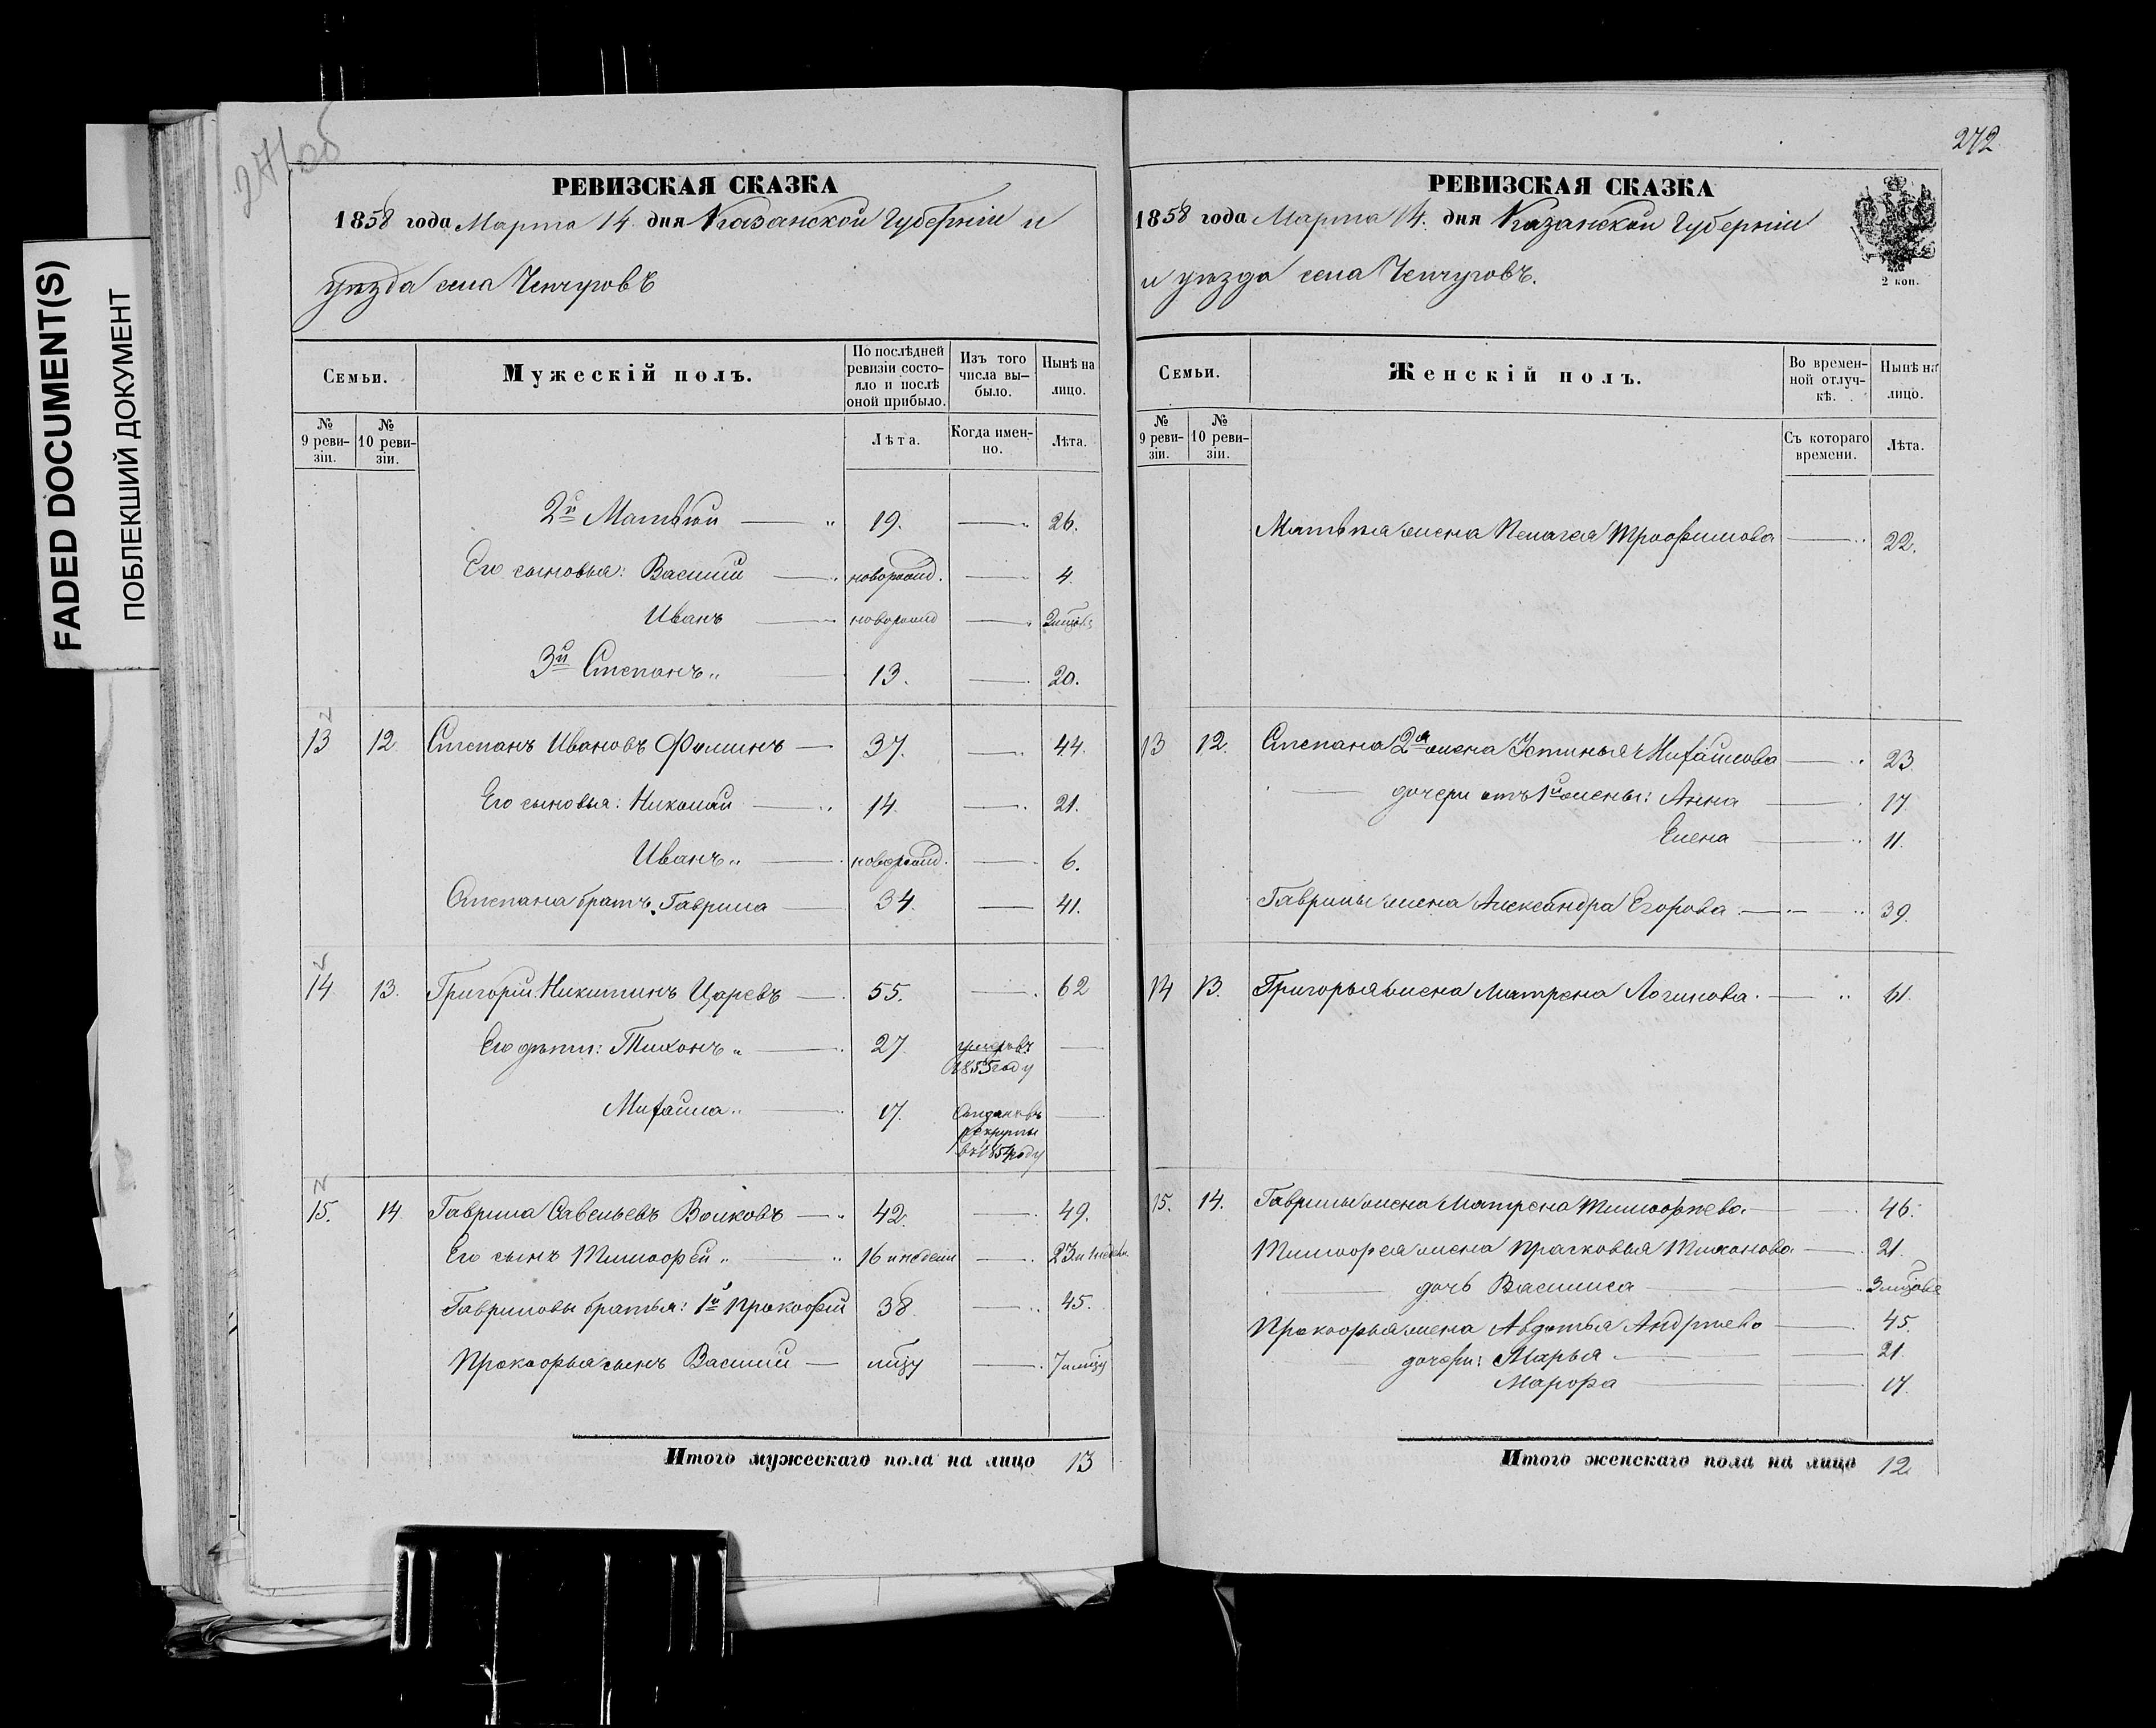 FADED DOCUMENT(S)
ПОБЛЕКШИЙ ДОКУМЕНТ
271об
РЕВИЗСКАЯ СКАЗКА
1858 года Марта 14. дня Казанской Губерніи и
уѣзда села Чепчуговъ
Семьи.
Мужескій полъ.
По послѣдней ревизіи состояло и послѣ оной прибыло.
Изъ того числа выбыло.
Нынѣ на лицо.
№ 9 ревизіи.
№ 10 ревизіи.
Лѣта.
Когда именно.
Лѣта.
2й Матвѣй 19. 26.
Его сыновья: Василий новорожд. 4.
Иванъ новорожд
3й Степанъ 13. 20.
13 12. Степанъ Ивановъ Фоминъ 37. 44.
Его сыновья: Николай 14. 21.
Иванъ новорожд. 6.
Степана братъ Гаврила 34. 41.
14 13. Григорій Никитинъ Царевъ 55. 62
Его дѣти: Тихонъ 27. умеръ въ 1855 году
Михаила 17. Отданъ въ рекруты въ 1854 году
15. 14 Гаврила Савельевъ Волковъ 42. 49.
Его сынъ Тимофей 16 и недели 23 и недели
Гавриловы братья: 1й Прокофій 38. 45.
Прокофья сынъ Василий мцзу 7 и мцзу
Итого мужескаго пола на лицо 13
272
РЕВИЗСКАЯ СКАЗКА
1858 года Марта 14. дня Казанской Губерніи
и уѣзда села Чепчуговъ.
2 коп.
Семьи.
Женскій полъ.
Во временной отлучкѣ.
Нынѣ на лицо.
№ 9 ревизіи.
№ 10 ревизіи.
Съ котораго времени.
Лѣта.
Матвѣя жена Пелагея Трофимова 22.
13 12. Степана 2я жена Устинья Михайлова 23.
дочери отъ 1й жены: Анна 17.
Елена 11.
Гаврилы жена Александра Егорова 39.
14 13. Григорья жена Матрена Логинова 61.
15. 14. Гаврилы жена Матрена Тимофѣева 46.
Тимофея жена Прасковья Тихонова 21.
дочь Василиса
Прокофья жена Авдотья Андрѣева 45.
дочери: Марья 21.
Марфа 17.
Итого женскаго пола на лицо 12.